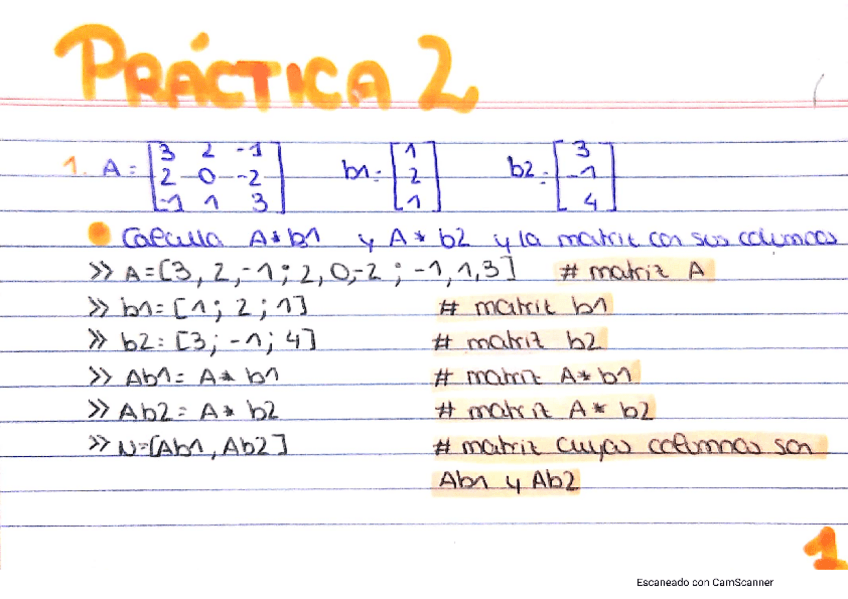 PRÁCTICA 2
1. A = [3 2 -1 b1 = [1 b2 = [3
2 0 -2 2 -1
-1 1 3] 1] 4]
Calcula A*b1 y A*b2 y la matriz con sus columnas
>> A=[3, 2,-1; 2, 0,-2 ; -1,1,3] # matriz A
>> b1= [1; 2 ; 1] # matriz b1
>> b2= [3; -1; 4] # matriz b2
>> Ab1= A* b1 # matriz A* b1
>> Ab2= A* b2 # matriz A* b2
>> N=[Ab1, Ab2] # matriz cuyas columnas son
Ab1 y Ab2
1
Escaneado con CamScanner